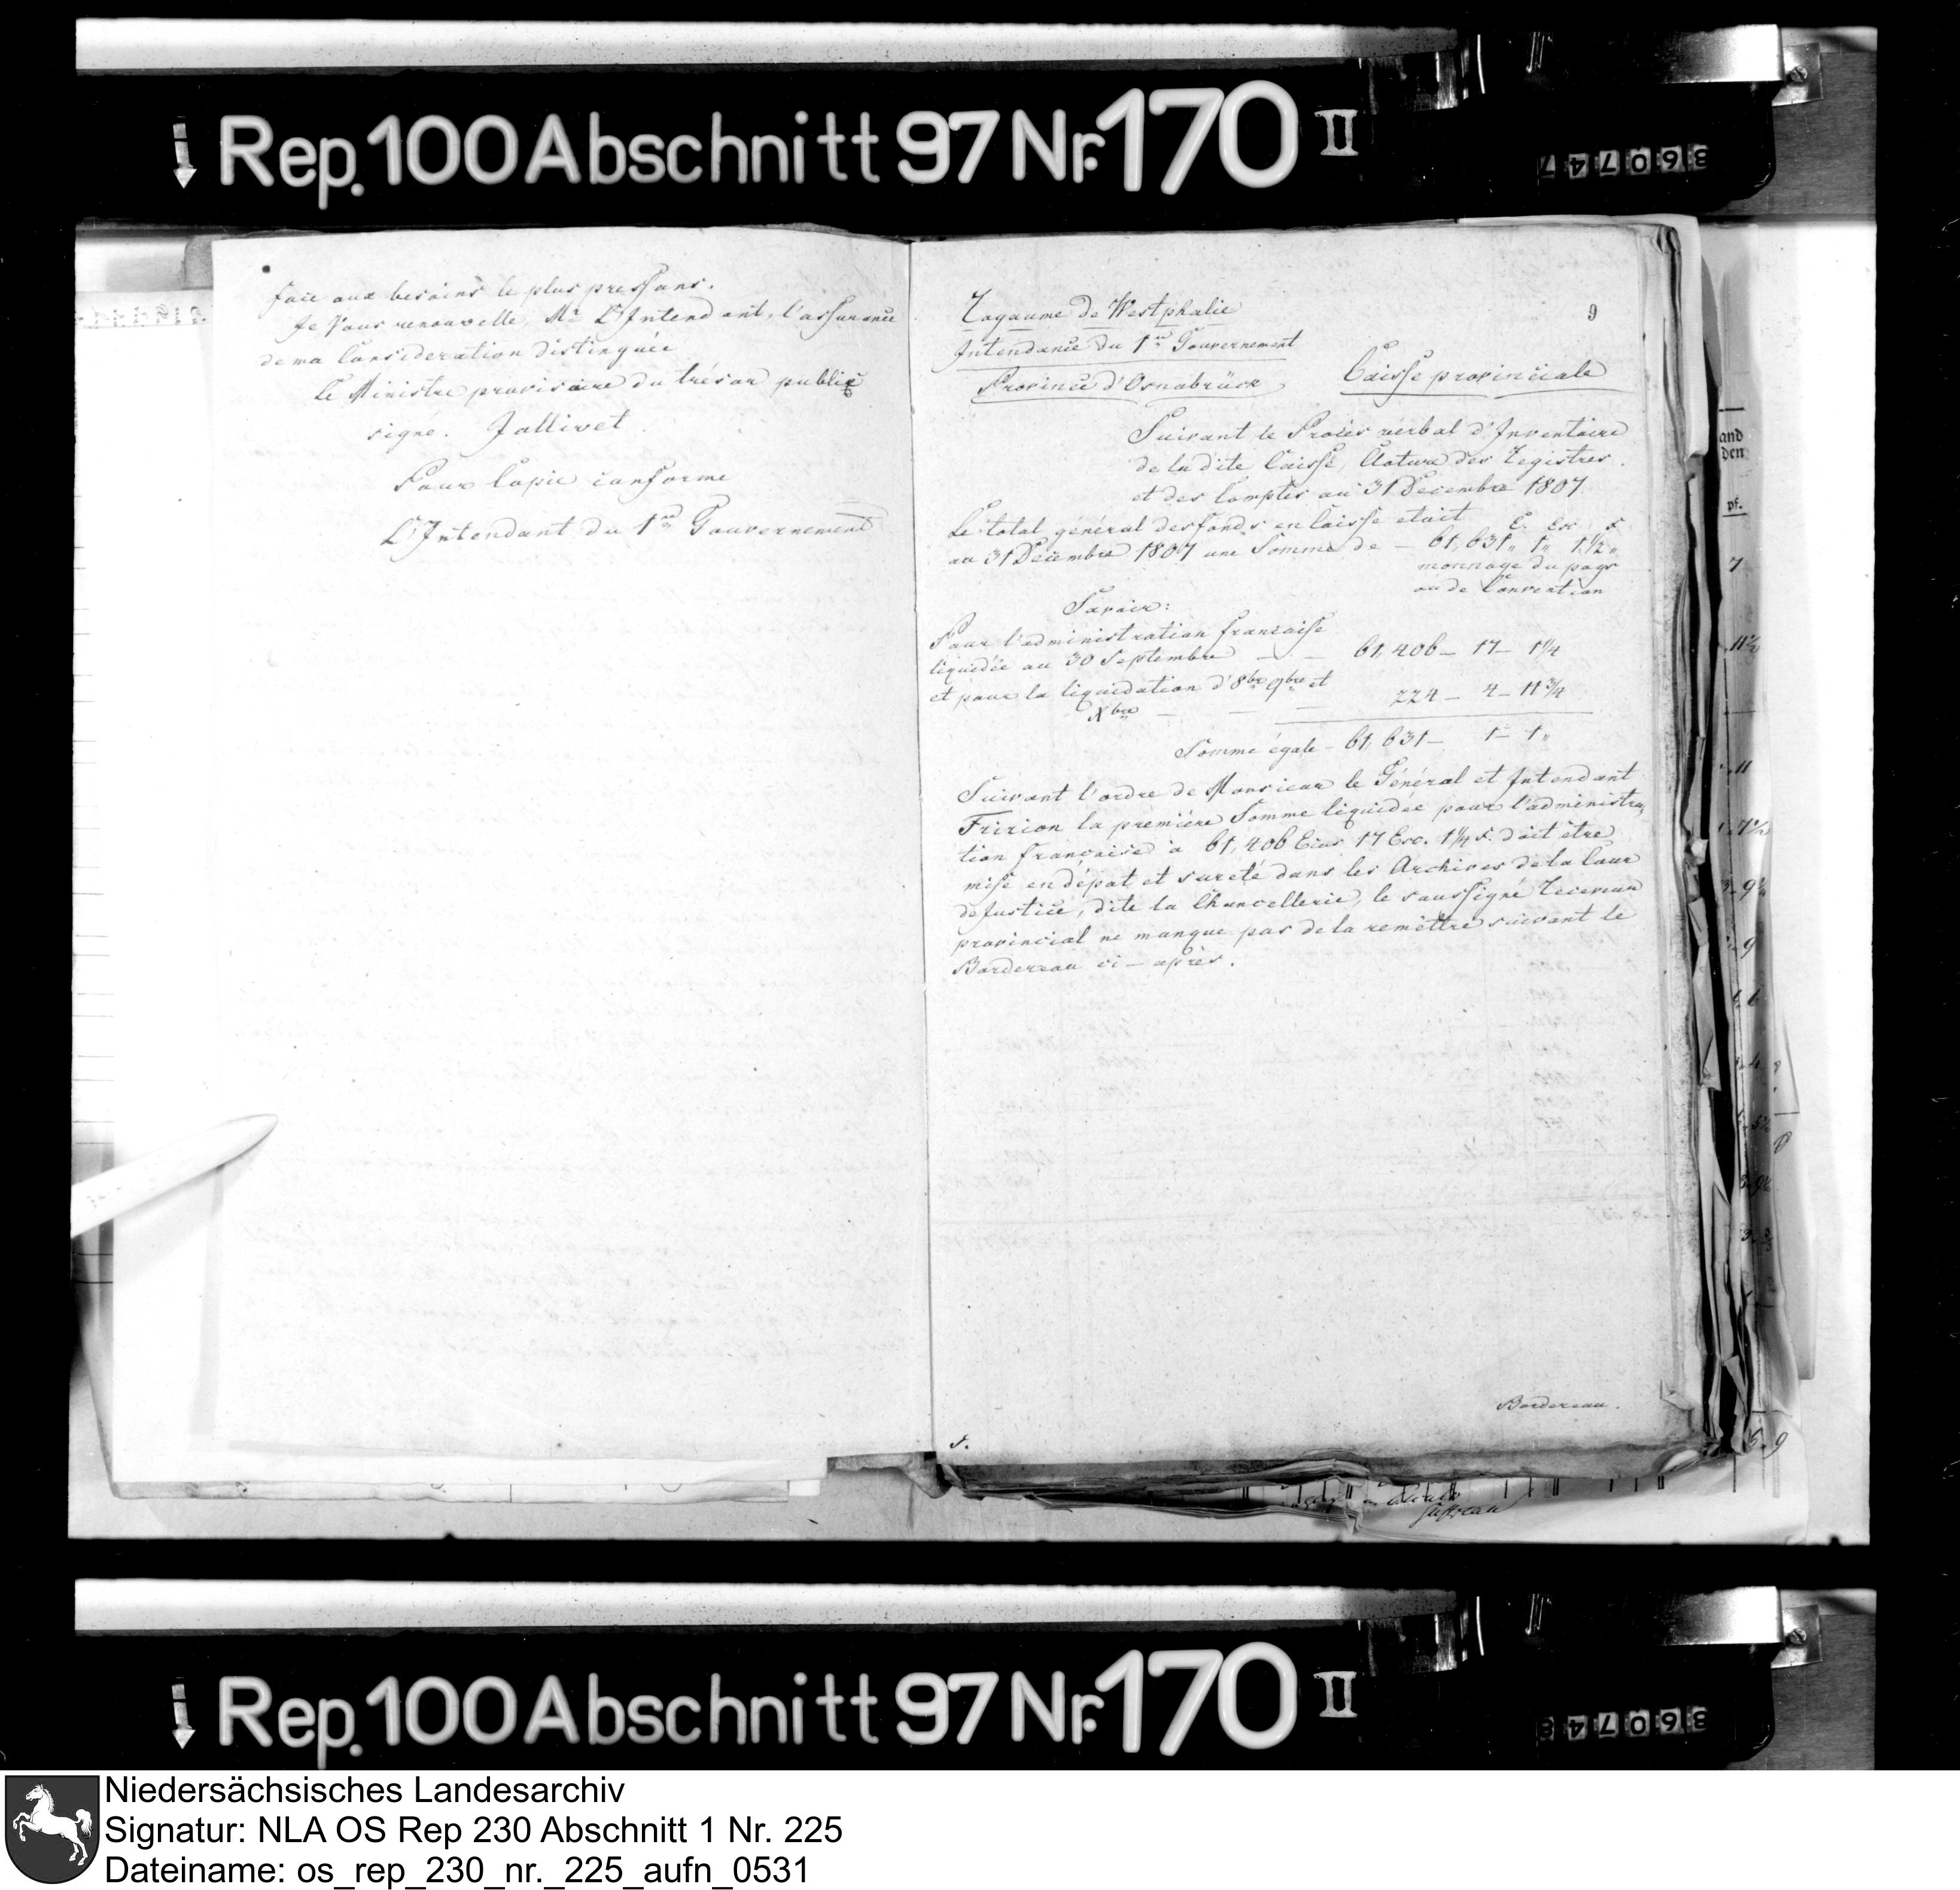 Rep. 100 Abschnitt 97 Nr. 170 II
860747
face aux besoins le plus pressans.
Je Vous renouvelle, Mr. L'Intendant, l'assurance
de ma Consideration distinguée
Le Ministre provisoire du trésor public
signé. Jollivet
Pour Copie conforme
L'Intendant du 1er Gouvernement
9
Royaume de Westphalie
Intendance du 1er Gouvernement
Province d'Osnabrück
Caisse provinciale
Suivant le Procès verbal d'Inventaire
de la dite Caisse, Cloture des Registres
et des Comptes au 31 Decembre 1807
Le total général des fonds en Caisse etait
au 31 Decembre 1807 une Somme de — 61,631 " 1 " 1 1/2 "
monnaye du pays
ou de Convention
Savoir:
Pour l'administration française
liquidée au 30 Septembre — — 61,406 — 17 — 1 1/4
et pour la liquidation d'8bre 9bre et
Xbre — — — 224 — 4 — 11 3/4
Somme égale — 61,631 — 1 — 1 "
Suivant l'ordre de Monsieur le Général et Intendant
Fririon la première Somme liquidée pour l'administra,
tion française à 61,406 Ecus 17 Esc. 1 1/4 F. doit être
mise en dépot et sureté dans les Archives de la Cour
de Justice, dite la Chancellerie, le soussigné Receveur
provincial ne manque pas de la remettre suivant le
Bordereau ci — après.
Bordereau.
Rep. 100 Abschnitt 97 Nr. 170 II
860748
Niedersächsisches Landesarchiv
Signatur: NLA OS Rep 230 Abschnitt 1 Nr. 225
Dateiname: os_rep_230_nr._225_aufn_0531